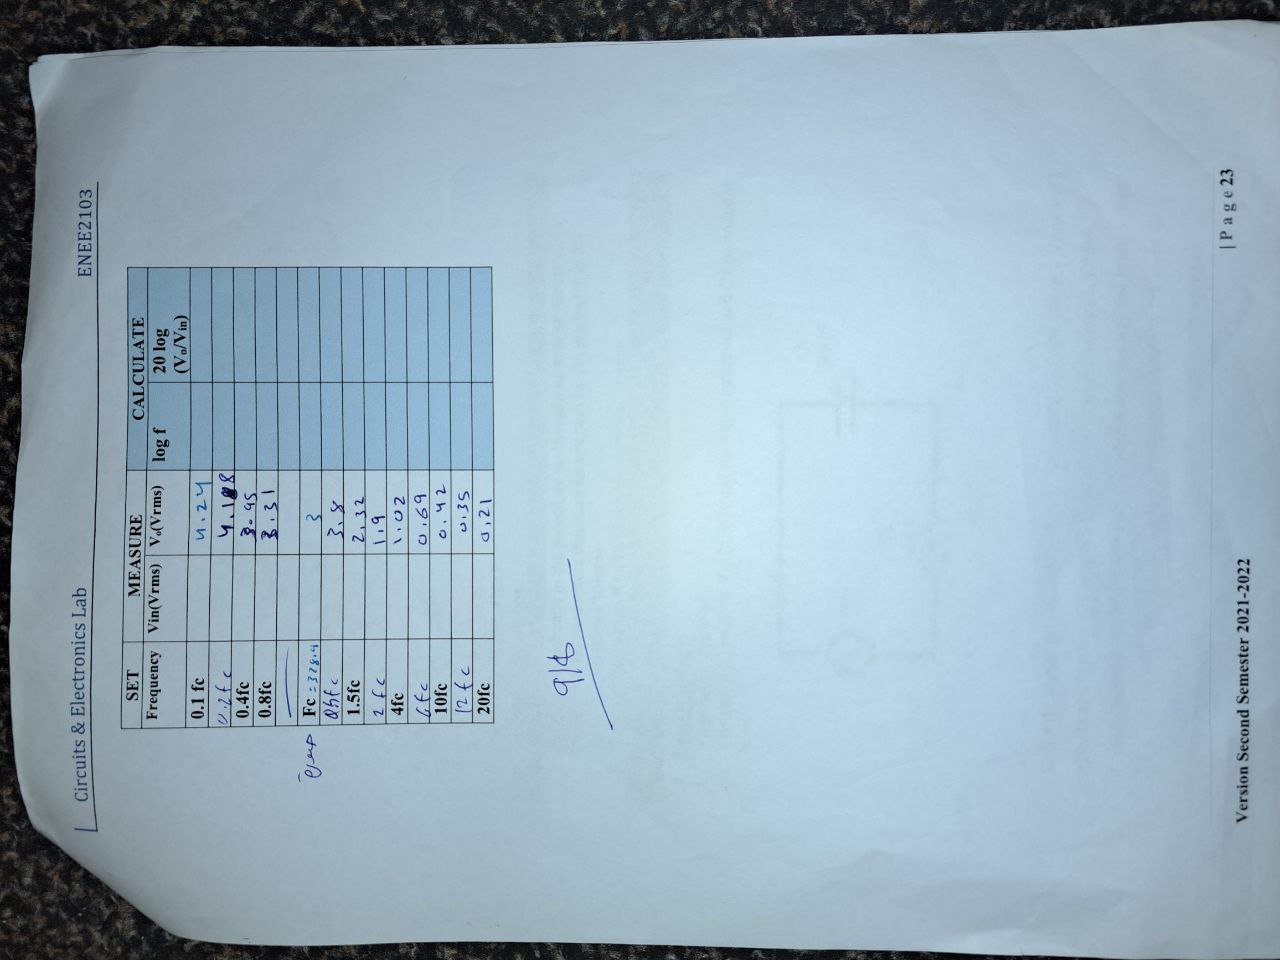 Circuits & Electronics Lab ENEE2103
SET MEASURE CALCULATE
Frequency Vin(Vrms) Vo(Vrms) log f 20 log (Vo/Vin)
0.1 fc 4.24
0.2fc 4.18
0.4fc 3.95
0.8fc 3.31
Fc = 328.4 3
3.8
1.5fc 2.32
2 fc 1.9
4fc 1.02
6fc 0.69
10fc 0.42
12 fc 0.35
20fc 0.21
9/8
Version Second Semester 2021-2022
| P a g e 23